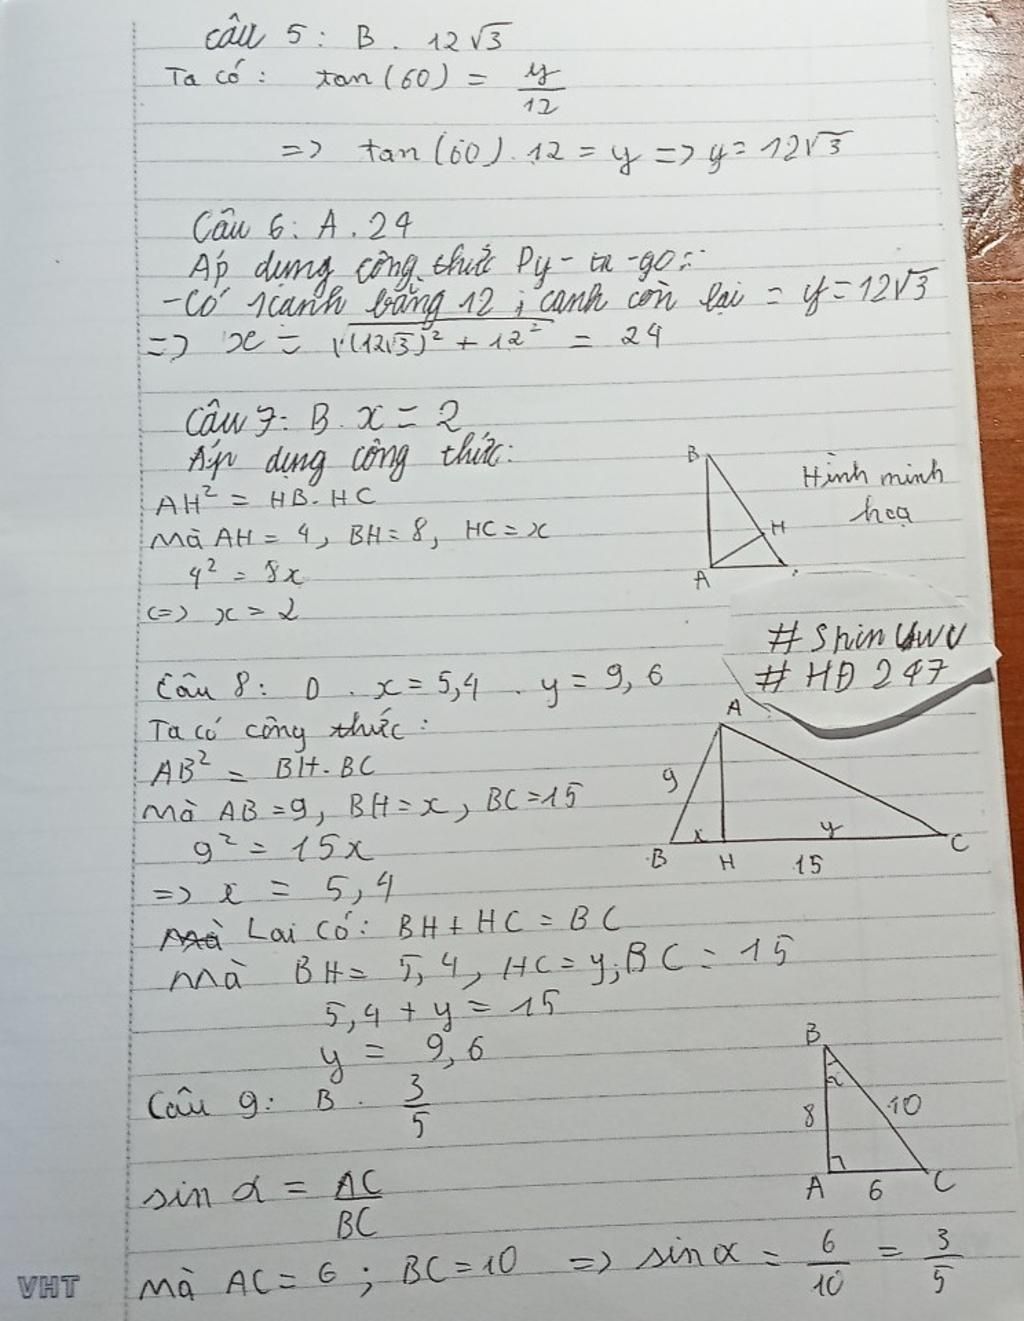 Câu 5 : B . 12√3
Ta có : tan(60) = y/12
=> tan(60) . 12 = y => y = 12√3
Câu 6 : A . 24
Áp dụng công thức Py-ta-go :
- Có 1 cạnh bằng 12 ; cạnh còn lại = y = 12√3
=> x = √(12√3)² + 12² = 24
Câu 7 : B . x = 2
Áp dụng công thức :
AH² = HB . HC
Mà AH = 4, BH = 8, HC = x
4² = 8x
<=> x = 2
B
H
A
Hình minh
hoạ
#Shin UwU
#HĐ 247
Câu 8 : D . x = 5,4 . y = 9,6
Ta có công thức :
AB² = BH . BC
Mà AB = 9, BH = x, BC = 15
9² = 15x
=> x = 5,4
Mà Lại có : BH + HC = BC
Mà BH = 5,4, HC = y ; BC = 15
5,4 + y = 15
y = 9,6
A
9
x
y
B
H
15
C
Câu 9 : B . 3/5
sin α = AC/BC
Mà AC = 6 ; BC = 10 => sin α = 6/10 = 3/5
B
α
8
10
A
6
C
VHT